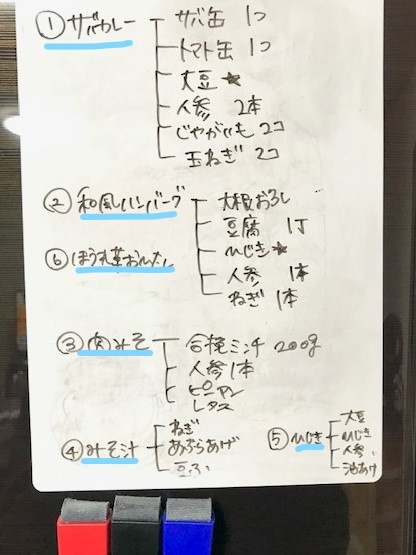 ① サバカレー
サバ缶 1コ
トマト缶 1コ
大豆 ★
人参 2本
じゃがいも 2コ
玉ねぎ 2コ
② 和風ハンバーグ
大根おろし
豆腐 1丁
ひじき ★
人参 1本
ねぎ 1本
⑥ ほうれん草おひたし
③ 肉みそ
合挽ミンチ 200g
人参 1本
ピーマン
レタス
④ みそ汁
ねぎ
あぶらあげ
豆ふ
⑤ ひじき
大豆
ひじき
人参
油あげ